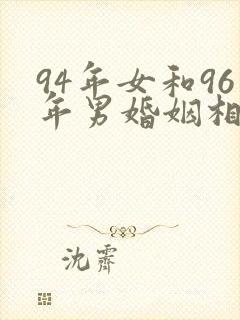 94年女和96
年男婚姻相
沈霽